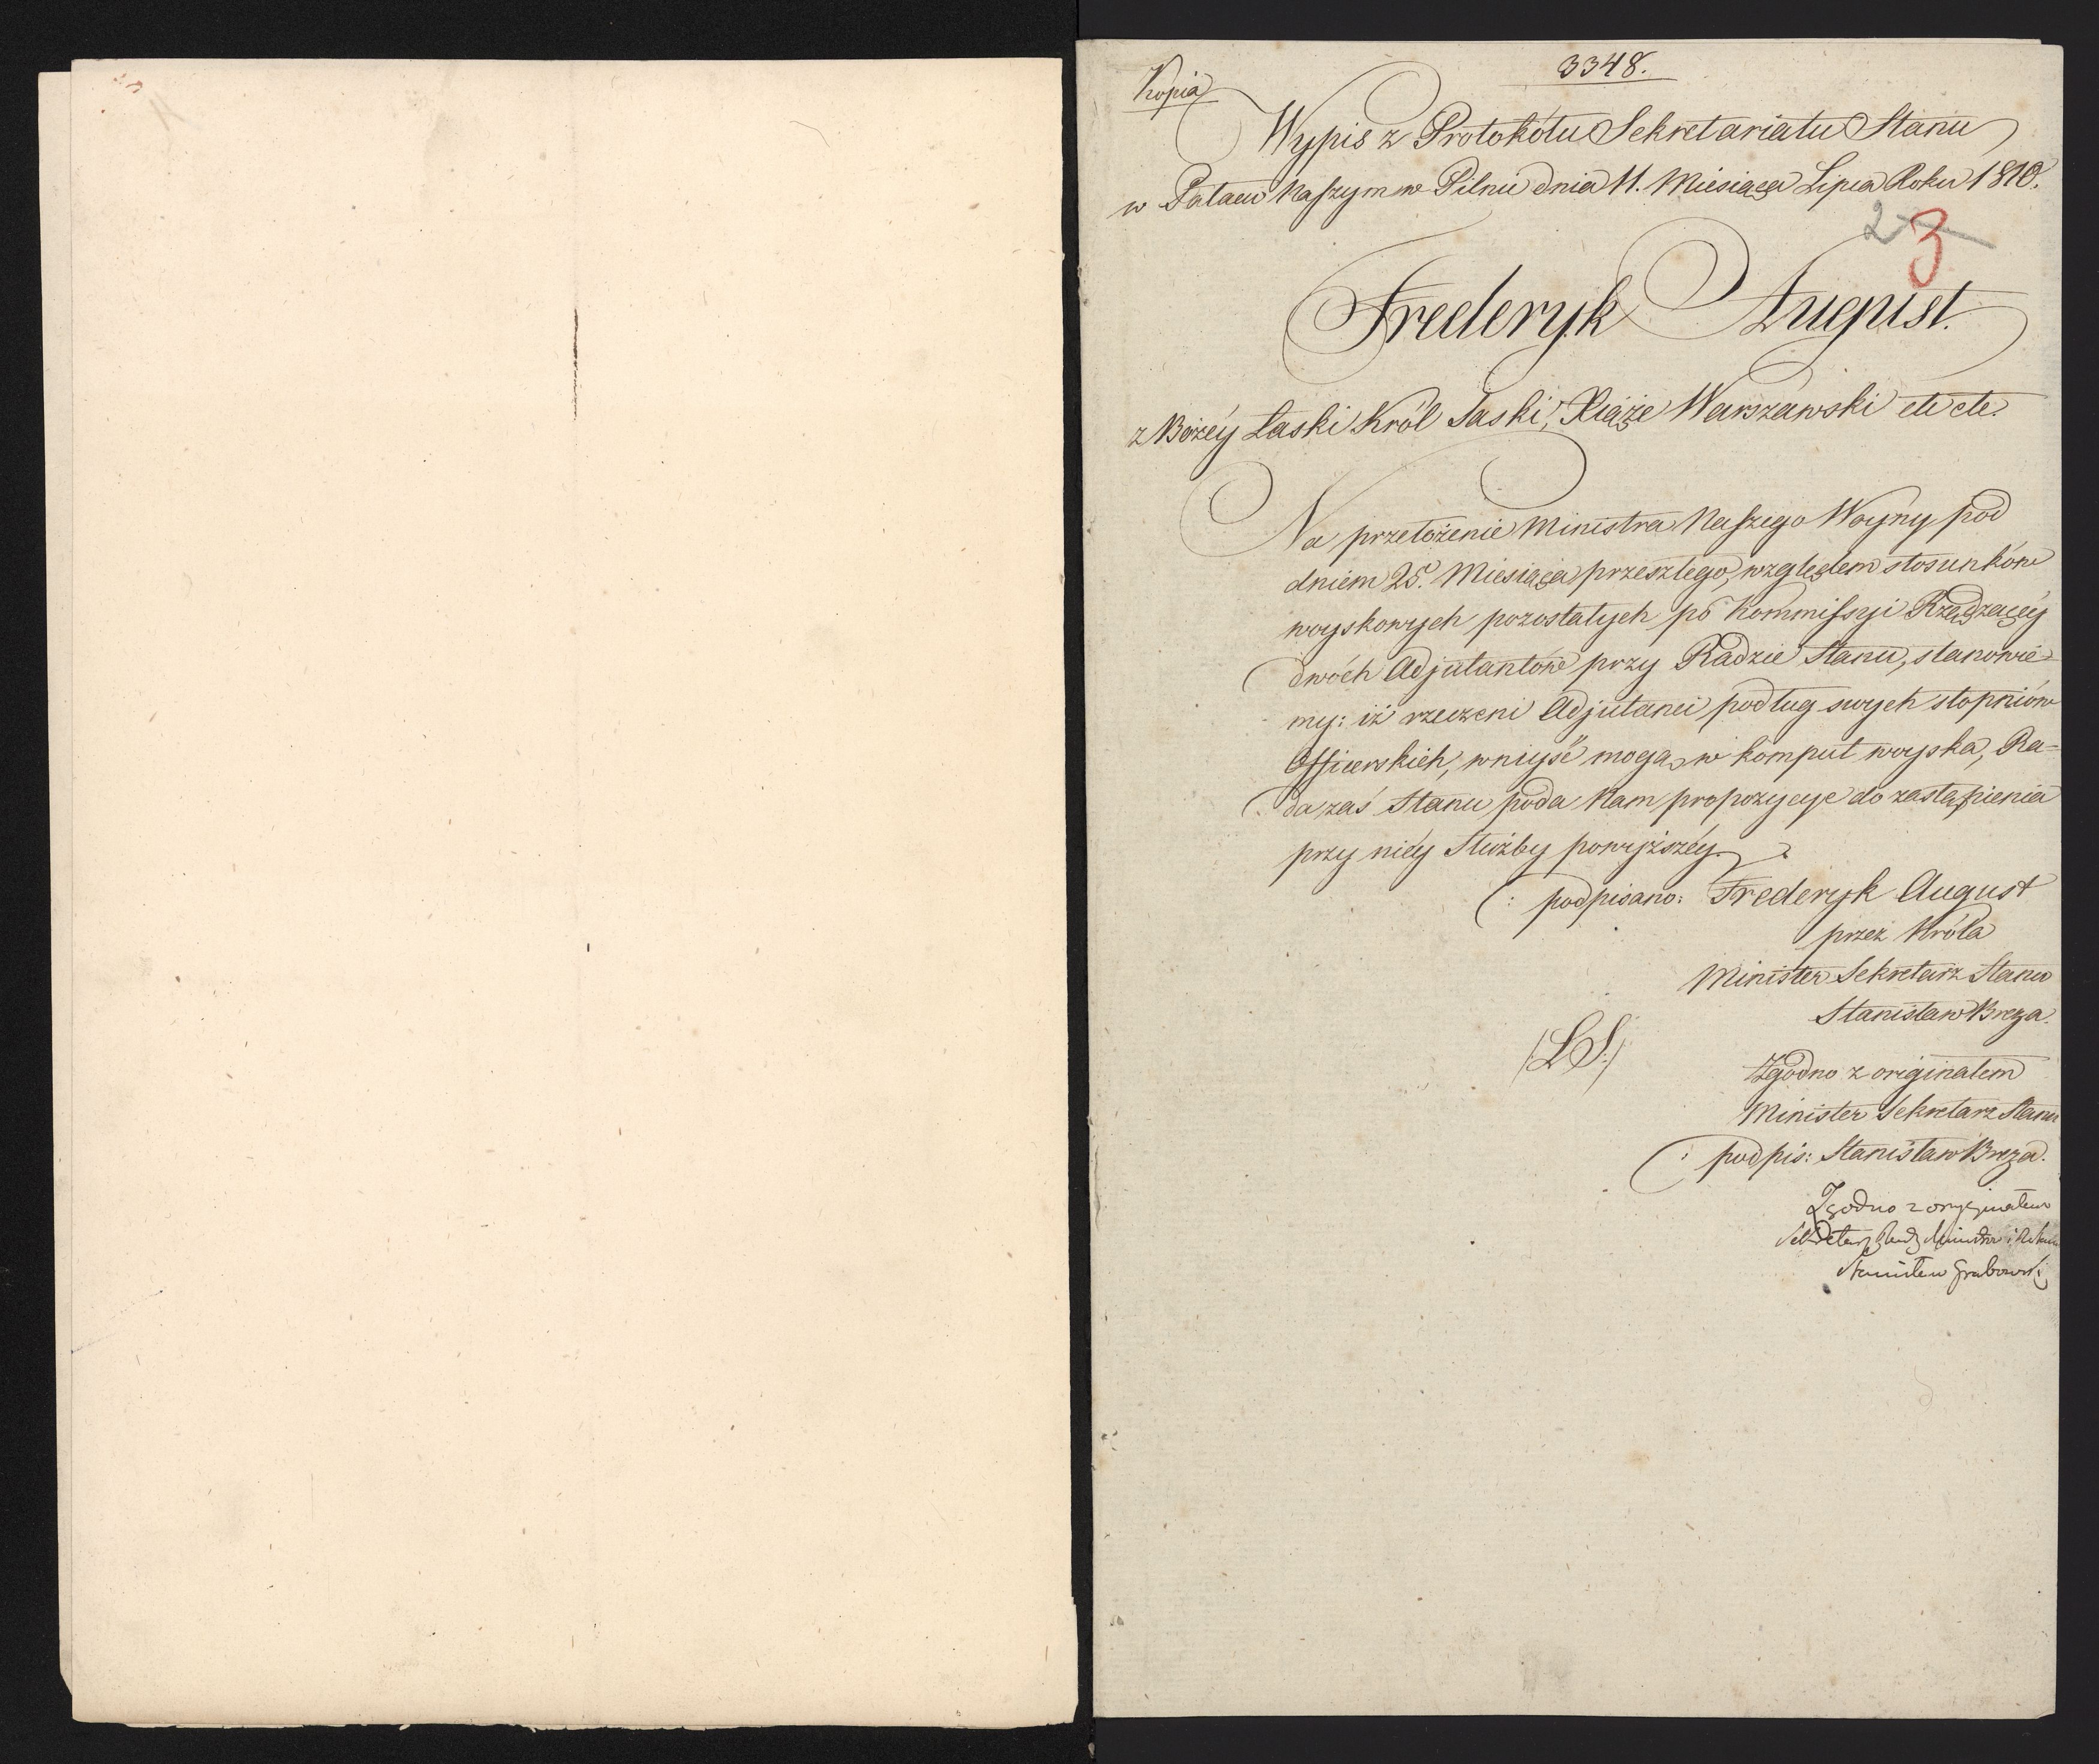 3348.
Kopia
Wypis z Protokółu Sekretariatu Stanu
w Pałacu Naszym w Pilnie dnia 11. Miesiąca Lipca Roku 1810.
2 3
Frederyk August.
z Bożéy Łaski Król Saski, Xiąże Warszawski etc etc.
Na przełożenie Ministra Naszego Woyny pod
dniem 25. Miesiąca przeszłego, względem stosunków
woyskowych pozostałych po Kommissyi Rządzącéy
dwóch Adjutantów przy Radzie Stanu, stanowie-
my: iż rzeczeni Adjutanci podług swych stopniów
Officerskich, wniyść mogą w komput woyska, Ra-
da zaś Stanu poda Nam propozycye do zastąpienia
przy niéy Służby powyższéy.
(: podpisano: Frederyk August
przez Króla
Minister Sekretarz Stanu
Stanisław Breza.
(L.S.)
Zgodno z originałem
Minister Sekretarz Stanu
(: podpis: Stanisław Breza.
Zgodno z oryginałem
Sekretarz Rady Ministrów i Stanu
Stanisław Grabowski